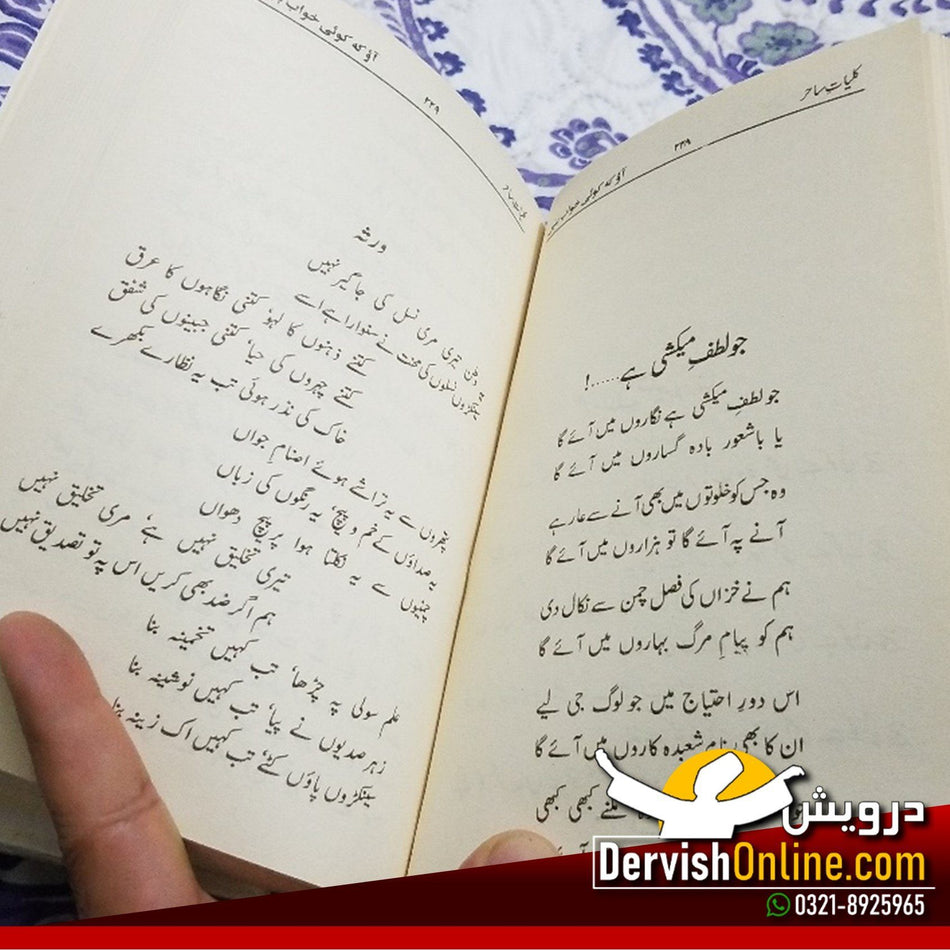 کلیاتِ ساحر ۲۲۸ آؤ کہ کوئی خواب
جو لطفِ میکشی ہے.....!
جو لطفِ میکشی ہے نگاروں میں آئے گا
یا با شعور بادہ گساروں میں آئے گا
وہ جس کو خلوتوں میں بھی آنے سے عار ہے
آنے پہ آئے گا تو ہزاروں میں آئے گا
ہم نے خزاں کی فصل چمن سے نکال دی
ہم کو پیامِ مرگ بہاروں میں آئے گا
اس دورِ احتیاج میں جو لوگ جی لیے
ان کا بھی نام شعبدہ کاروں میں آئے گا
ملنے کبھی کبھی
آؤ کہ کوئی خواب ۲۲۹
ورثہ
یہ وطن تیری مری نسل کی جاگیر نہیں
سینکڑوں نسلوں کی محنت نے سنوارا ہے اسے
کتنے ذہنوں کا لہو، کتنی نگاہوں کا عرق
کتنے چہروں کی حیا، کتنی جبینوں کی شفق
خاک کی نذر ہوئی تب یہ نظارے بکھرے
پتھروں سے یہ تراشے ہوئے اصنامِ جواں
یہ صداؤں کے خم و پیچ، یہ رنگوں کی زباں
چمنیوں سے یہ نکلتا ہوا پرپیچ دھواں
تیری تخلیق نہیں ہے، مری تخلیق نہیں
ہم اگر ضد بھی کریں اس پہ تو تصدیق نہیں
علم سولی پہ چڑھا، تب کہیں تخمینہ بنا
زہر صدیوں نے پیا، تب کہیں نوشینہ بنا
سینکڑوں پاؤں کٹے، تب کہیں اک زینہ بنا
درویش
DervishOnline.com
0321-8925965